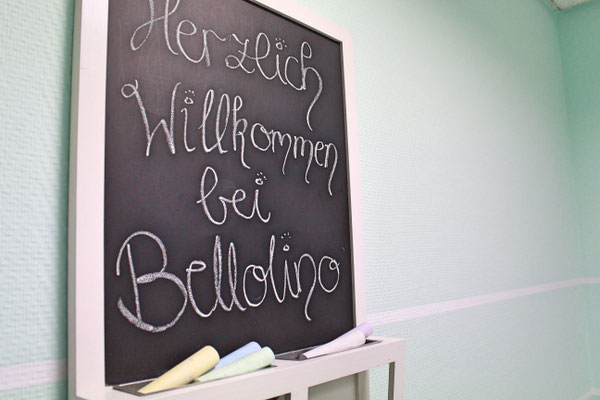 Herzlich
Willkommen
bei
Bellolino